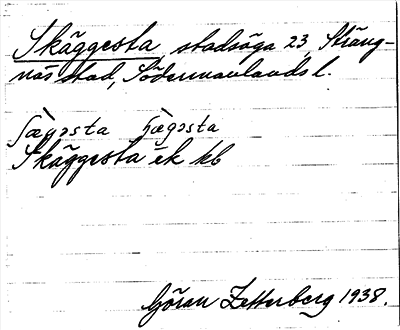 Skäggesta stadsäga 23, Sträng-
näs stad, Södermanlands l.
ʃæ̀gəsta ɧæ̀gəsta
Skäggesta ek kb
Göran Zetterberg 1938.